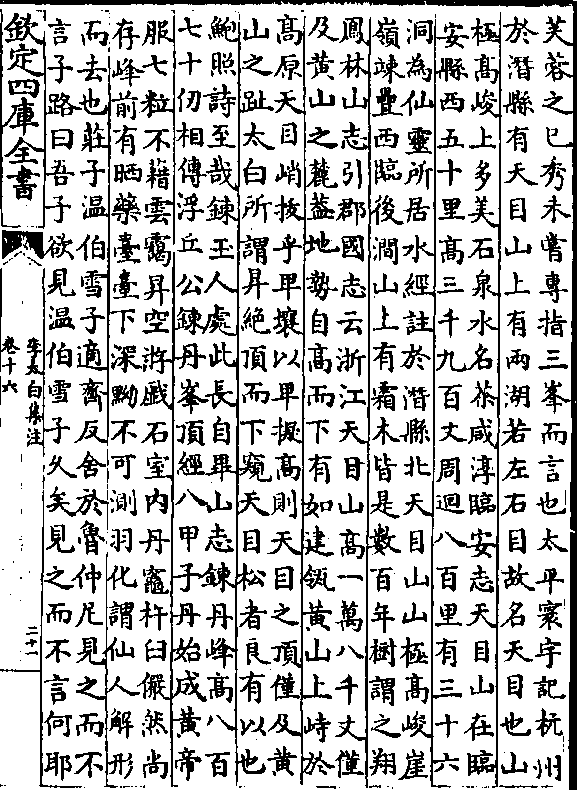 芙蓉之已秀未嘗專指三峯而言也太平寰宇記杭州
於潛縣有天目山上有兩湖若左右目故名天目也山
極高峻上多美石泉水名茶咸淳臨安志天目山在臨
安縣西五十里高三千九百丈周迴八百里有三十六
洞為仙靈所居水經註於潛縣北天目山山極高峻崖
嶺竦疊西臨後澗山上有霜木皆是數百年樹謂之翔
鳳林山志引郡國志云浙江天目山高一萬八千丈僅
及黄山之麓葢地勢自高而下有如建瓴黄山上峙於
高原天目峭拔乎卑壤以卑擬高則天目之頂僅及黄
山之趾太白所謂昇絶頂而下窺天目松者良有以也
鮑照詩至哉鍊玉人處此長自畢山志鍊丹峰高八百
七十仞相傳浮丘公鍊丹峯頂經八甲子丹始成黄帝
服七粒不藉雲靄昇空游戲石室内丹竈杵臼儼然尚
存峰前有晒藥臺臺下深黝不可測羽化謂仙人解形
而去也莊子温伯雪子適齊反舍於魯仲尼見之而不
言子路曰吾子欲見温伯雪子久矣見之而不言何耶
欽定四庫全書
李太白集注
卷十六
二十一